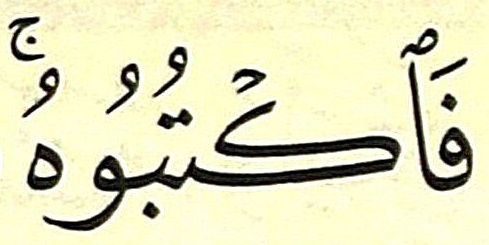 فَٱكْتُبُوهُۚ